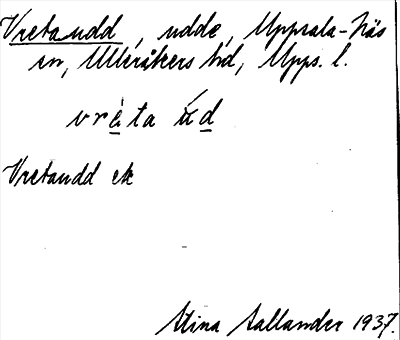 Vretaudd, udde, Uppsala-Näs
sn, Ulleråkers hd, Upps. l.
vrèta úd
Vretaudd ek
Stina Sallander 1937.